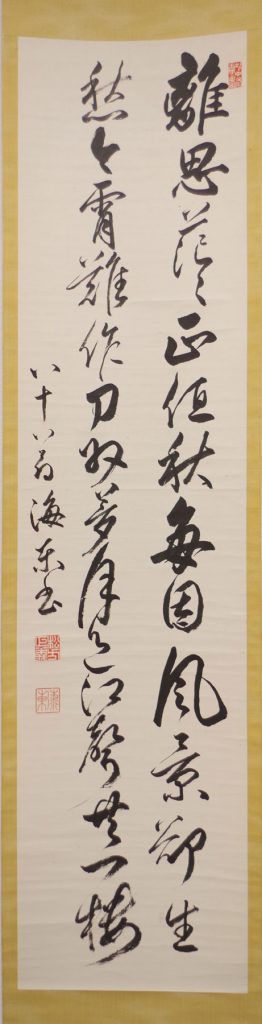 離思茫々正値秋每因風景卻生
愁今宵難作刀州夢月色江聲共一樓
八十八翁海東書
松方正義
海東